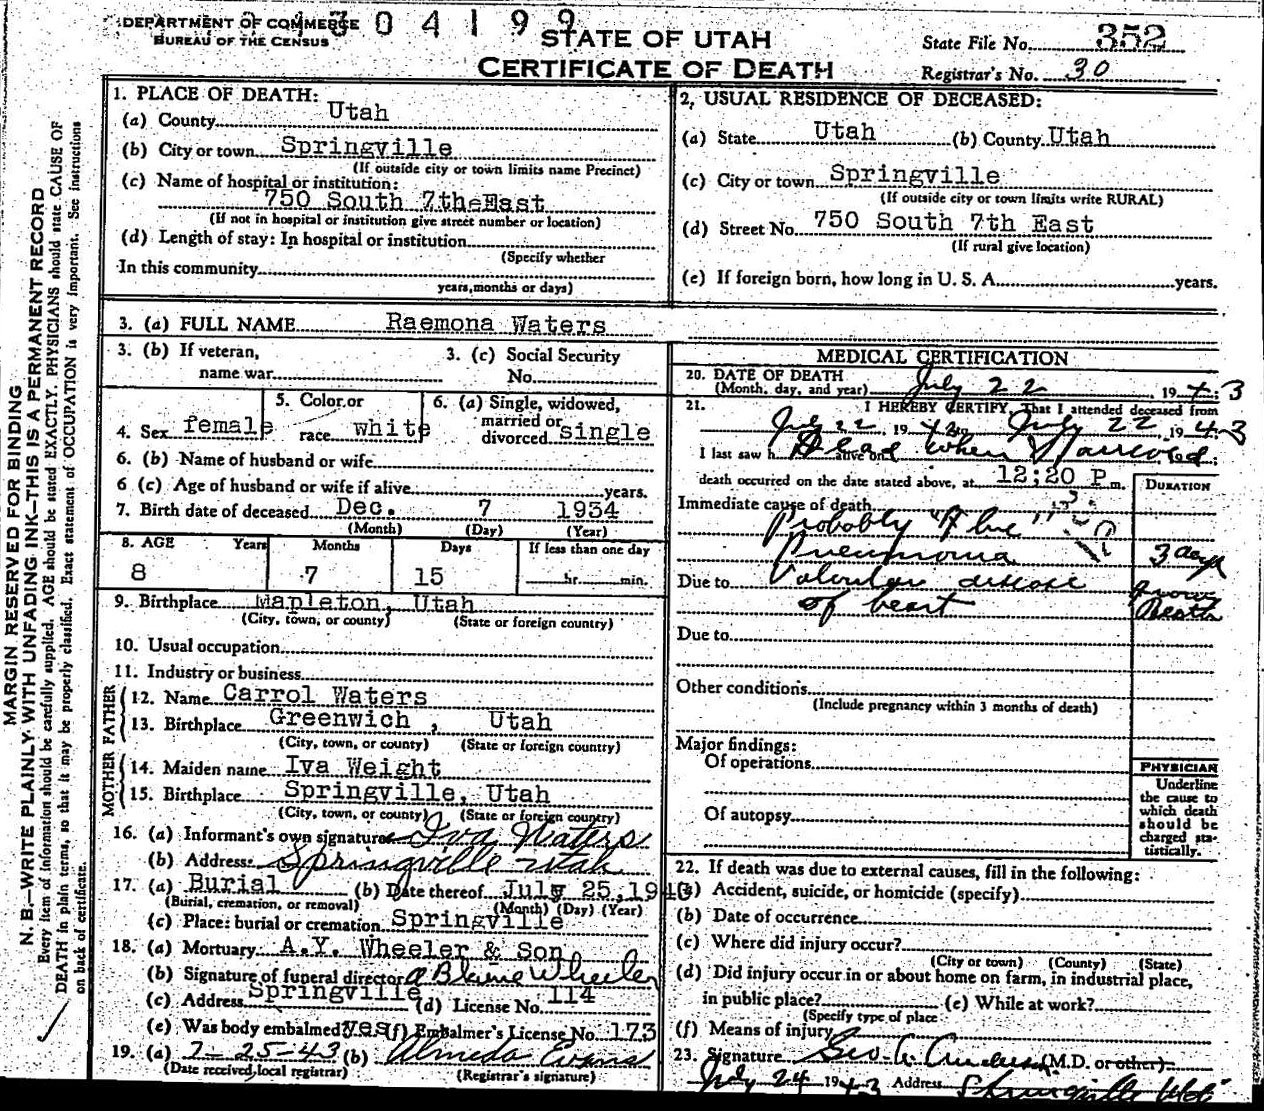 1 304199
DEPARTMENT OF COMMERCE
BUREAU OF THE CENSUS
STATE OF UTAH
CERTIFICATE OF DEATH
State File No. 352
Registrar's No. 30
MARGIN RESERVED FOR BINDING
N. B.—WRITE PLAINLY WITH UNFADING INK—THIS IS A PERMANENT RECORD
Every item of information should be carefully supplied. AGE should be stated EXACTLY. PHYSICIANS should state CAUSE OF
DEATH in plain terms, so that it may be properly classified. Exact statement of OCCUPATION is very important. See instructions
on back of certificate.
1. PLACE OF DEATH:
(a) County Utah
(b) City or town Springville
(If outside city or town limits name Precinct)
(c) Name of hospital or institution:
750 South 7th East
(If not in hospital or institution give street number or location)
(d) Length of stay: In hospital or institution
(Specify whether
In this community
years, months or days)
2. USUAL RESIDENCE OF DECEASED:
(a) State Utah (b) County Utah
(c) City or town Springville
(If outside city or town limits write RURAL)
(d) Street No. 750 South 7th East
(If rural give location)
(e) If foreign born, how long in U. S. A. years.
3. (a) FULL NAME Raemona Waters
3. (b) If veteran,
name war
3. (c) Social Security
No.
4. Sex female
5. Color or
race white
6. (a) Single, widowed,
married or
divorced single
6. (b) Name of husband or wife
6 (c) Age of husband or wife if alive years.
7. Birth date of deceased Dec. 7 1934
(Month) (Day) (Year)
8. AGE Years Months Days If less than one day
8 7 15 hr. min.
9. Birthplace Mapleton, Utah
(City, town, or county) (State or foreign country)
10. Usual occupation
11. Industry or business
FATHER
12. Name Carrol Waters
13. Birthplace Greenwich , Utah
(City, town, or county) (State or foreign country)
MOTHER
14. Maiden name Iva Weight
15. Birthplace Springville, Utah
(City, town, or county) (State or foreign country)
16. (a) Informant's own signature Iva Waters
(b) Address: Springville Utah
17. (a) Burial (b) Date thereof July 25, 1943
(Burial, cremation, or removal) (Month) (Day) (Year)
(c) Place: burial or cremation Springville
18. (a) Mortuary A.Y. Wheeler & Son
(b) Signature of funeral director A Blaine Wheeler
(c) Address Springville (d) License No. 114
(e) Was body embalmed? yes (f) Embalmer's License No. 173
19. (a) 7-25-43 (b) Almeda Evans
(Date received, local registrar) (Registrar's signature)
MEDICAL CERTIFICATION
20. DATE OF DEATH
(Month, day, and year) July 22, 1943
21. I HEREBY CERTIFY, That I attended deceased from
July 22, 1943 to July 22, 1943
I last saw h alive on Dead when I arrived
death occurred on the date stated above, at 12:20 P.m.
DURATION
Immediate cause of death
Probably "Flue"
Pneumonia 3 days
Due to Valvular disease
of heart
Due to
Other conditions
(Include pregnancy within 3 months of death)
Major findings:
Of operations
Of autopsy
PHYSICIAN
Underline
the cause to
which death
should be
charged sta-
tistically.
22. If death was due to external causes, fill in the following:
(a) Accident, suicide, or homicide (specify)
(b) Date of occurrence
(c) Where did injury occur?
(City or town) (County) (State)
(d) Did injury occur in or about home on farm, in industrial place,
in public place? (e) While at work?
(Specify type of place
(f) Means of injury
23. Signature Geo. A. Anderson (M.D. or other)
July 24 1943 Address Springville Utah